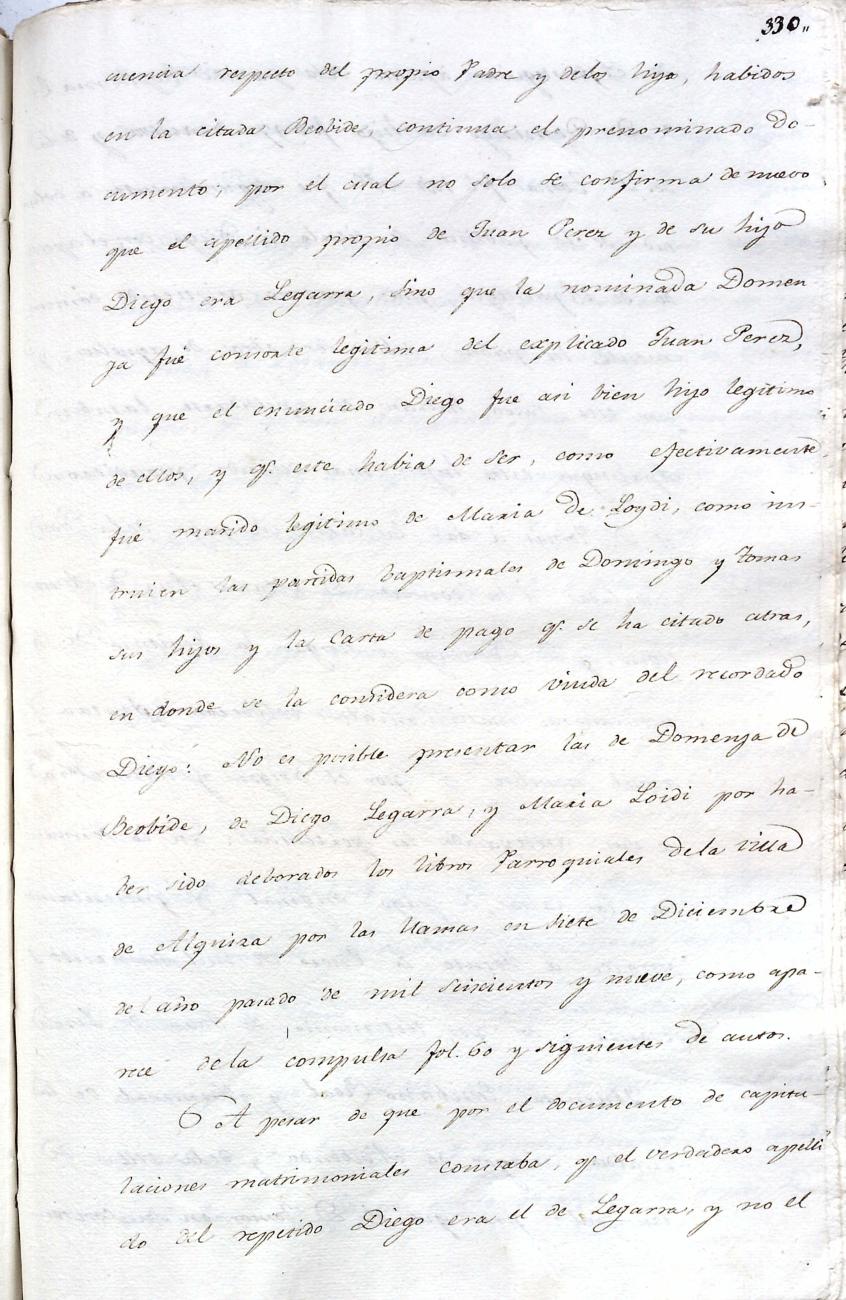 330,,
cuencia respecto del propio Padre y delos hijo, habidos
en la citada Beobide, continua el prenominado do-
cumento; por el cual no solo se confirma de nuevo
que el apellido propio de Juan Perez y de su hijo
Diego era Legarra, sino que la nominada Domen
ja fué consorte legitima del explicado Juan Perez,
y que el enunciado Diego fue asi bien hijo legitimo
de ellos, y qe. este habia de ser, como efectivamente
fué marido legitimo de Maria de Loydi, como ins-
truien las partidas baptismales de Domingo y Tomas
sus hijos y la Carta de pago qe. se ha citado atras,
en donde se la considera como viuda del recordado
Diego: No es posible presentar las de Domenja de
Beobide, de Diego Legarra, y Maria Loidi por ha-
ber sido deborados los libros Parroquiales dela villa
de Alquiza por las llamas en siete de Diciembre
del año pasado de mil seiscientos y nueve, como apa-
rece dela compulsa fol. 60 y siguientes de autos.
6 A pesar de que por el documento de capitu-
laciones matrimoniales constaba, qe. el verdadero apelli
do del repetido Diego era el de Legarra, y no el